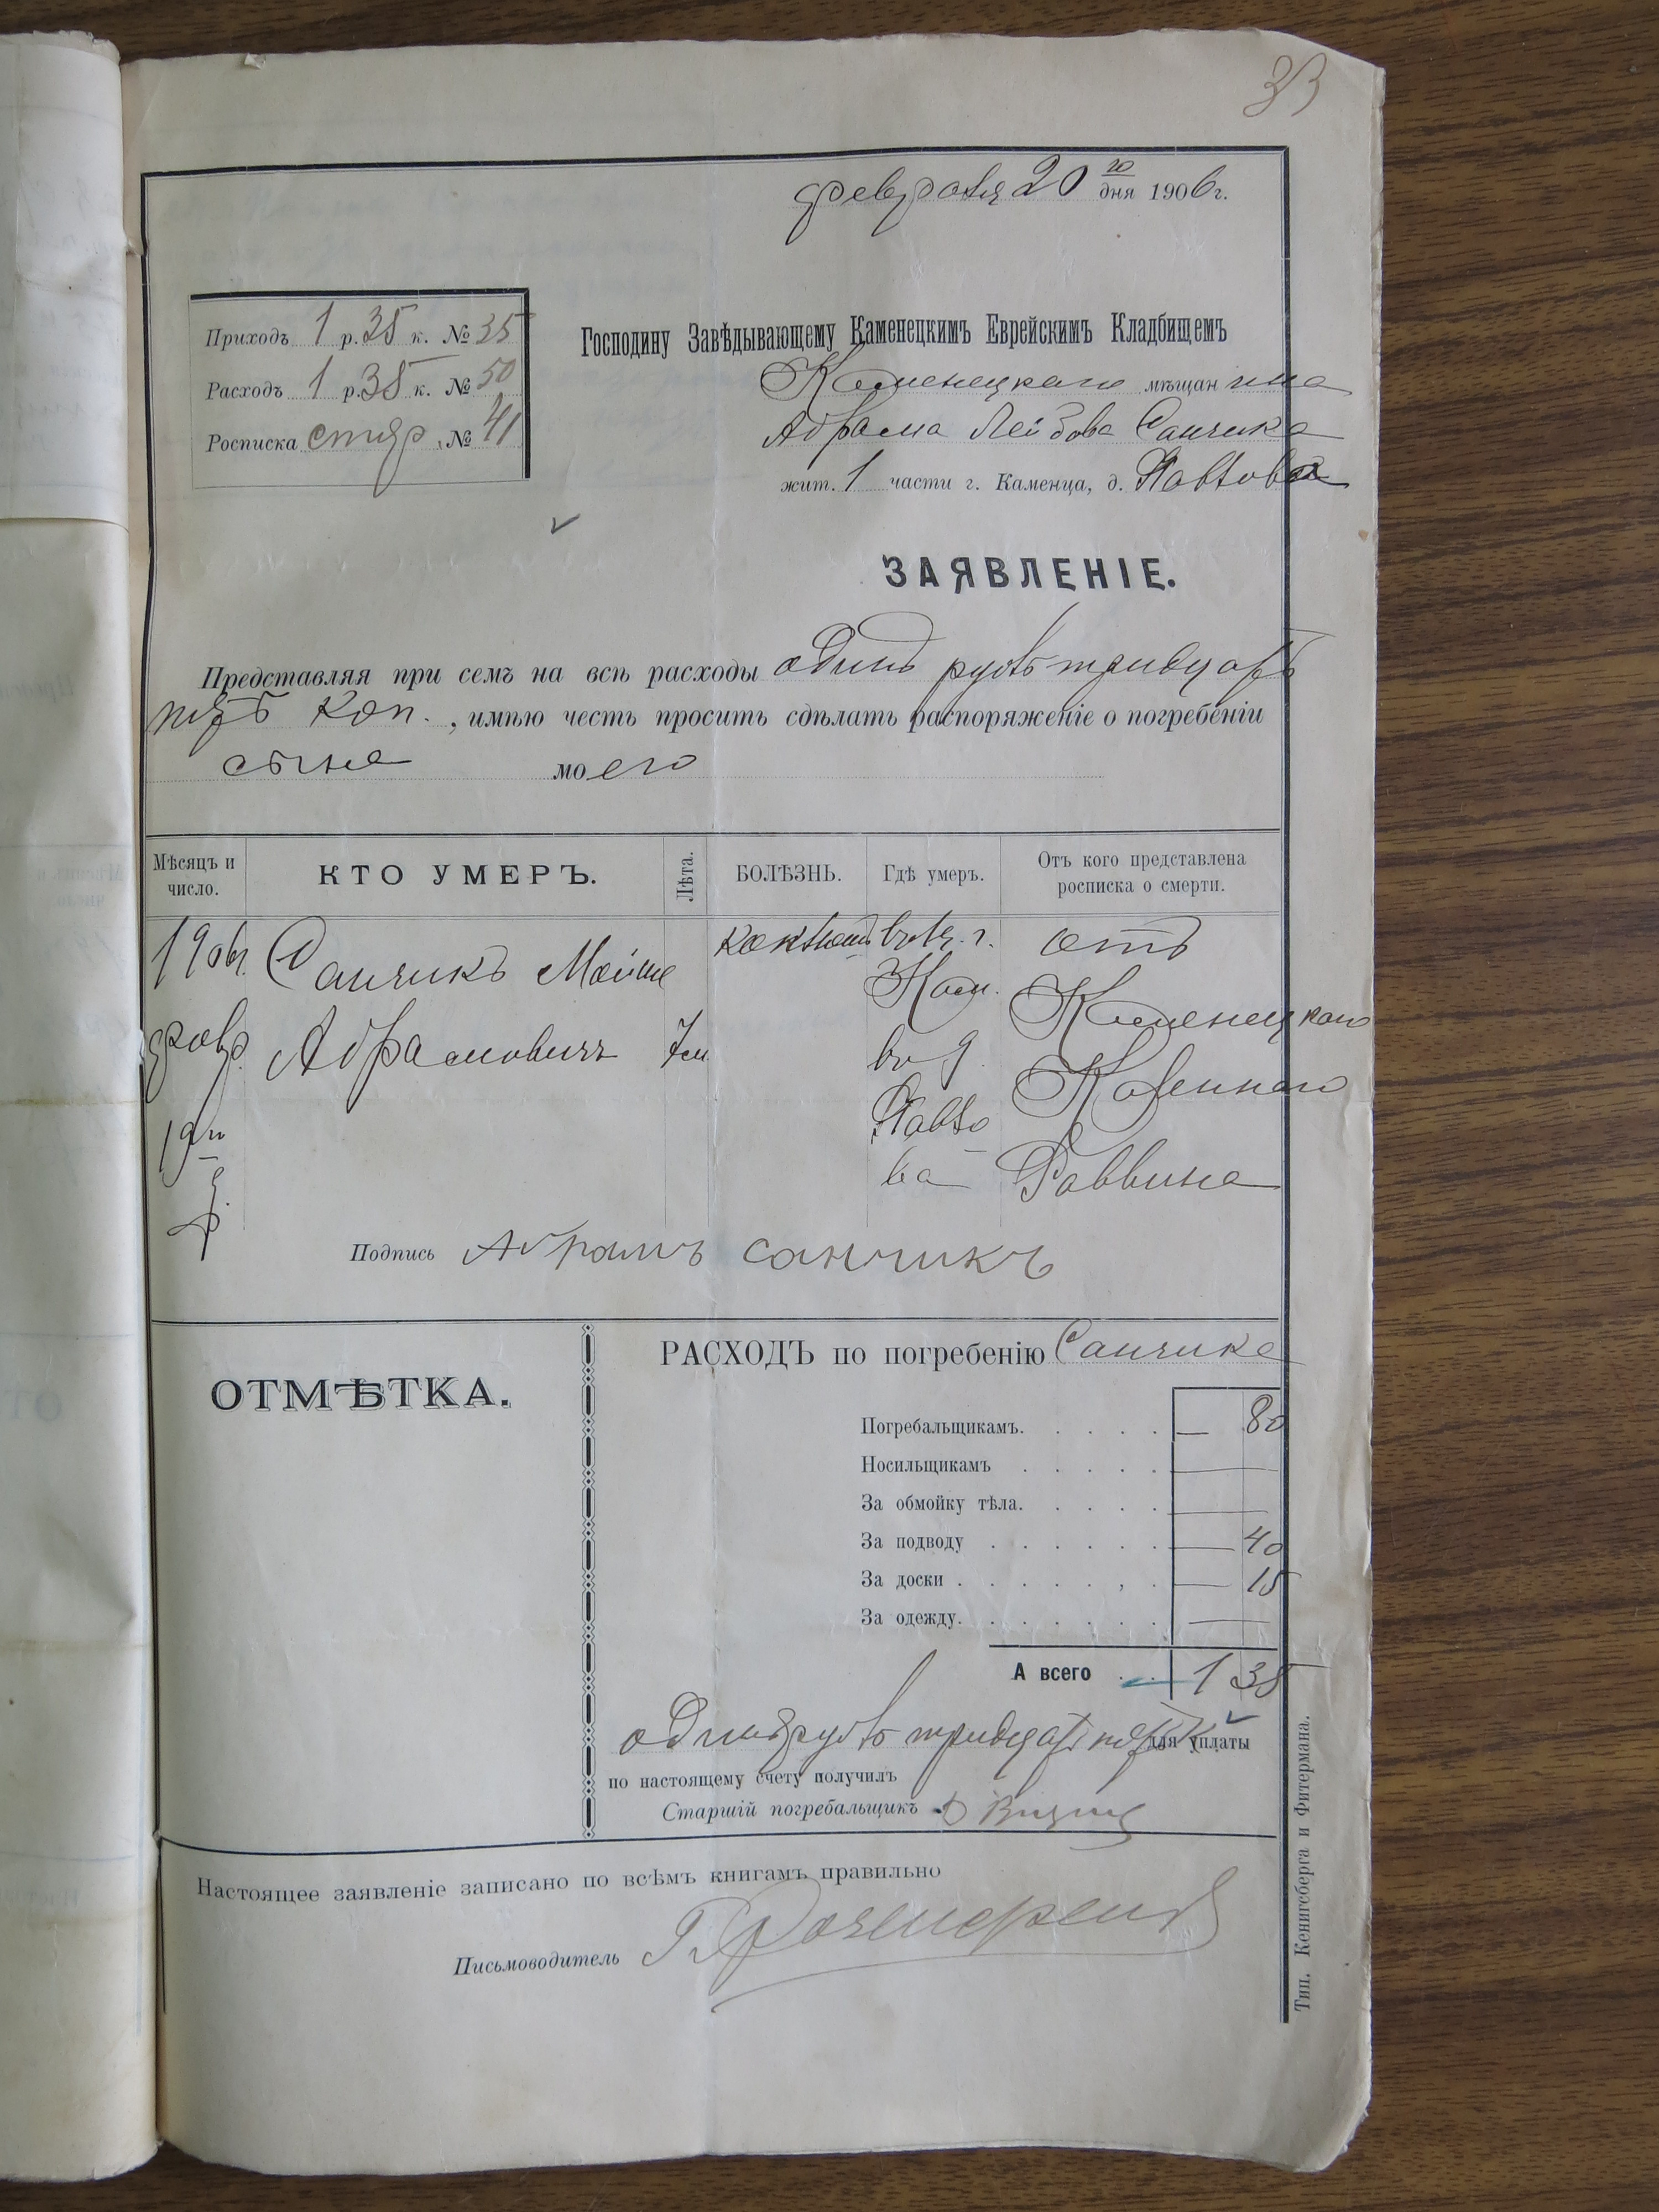 33
февраля 20 го дня 1906 г.
Приходъ 1 р. 35 к. № 35
Расходъ 1 р. 35 к. № 50
Росписка № 41
Господину Завѣдывающему Каменецкимъ Еврейскимъ Кладбищемъ
Каменецкаго мѣщанина
Абрама Лейбова Санчика
жит. 1 части г. Каменца, д.
ЗАЯВЛЕНІЕ.
Представляя при семъ на всѣ расходы одинъ рубль тридцать
пять коп. , имѣю честь просить сдѣлать распоряженіе о погребеніи
сына моего
Мѣсяцъ и число.
КТО УМЕРЪ.
Лѣта.
БОЛѢЗНЬ.
Гдѣ умеръ.
Отъ кого представлена росписка о смерти.
1906 г.
февр.
19 го
Санчикъ Мойше
Абрамовичъ
7 м
коклюшъ
въ г.
Кам.
въ д.
отъ
Каменецкаго
Казеннаго
Раввина
Подпись Абрамъ санчикъ
ОТМѢТКА.
РАСХОДЪ по погребенію Санчика
Погребальщикамъ. — 80
Носильщикамъ —
За обмойку тѣла. —
За подводу — 40
За доски — 15
За одежду. —
А всего 1 35
одинъ рубль тридцать пять к. для уплаты
по настоящему счету получилъ
Старшій погребальщикъ
Настоящее заявленіе записано по всѣмъ книгамъ правильно
Письмоводитель
Тип. Кенигсберга и Фитермана.